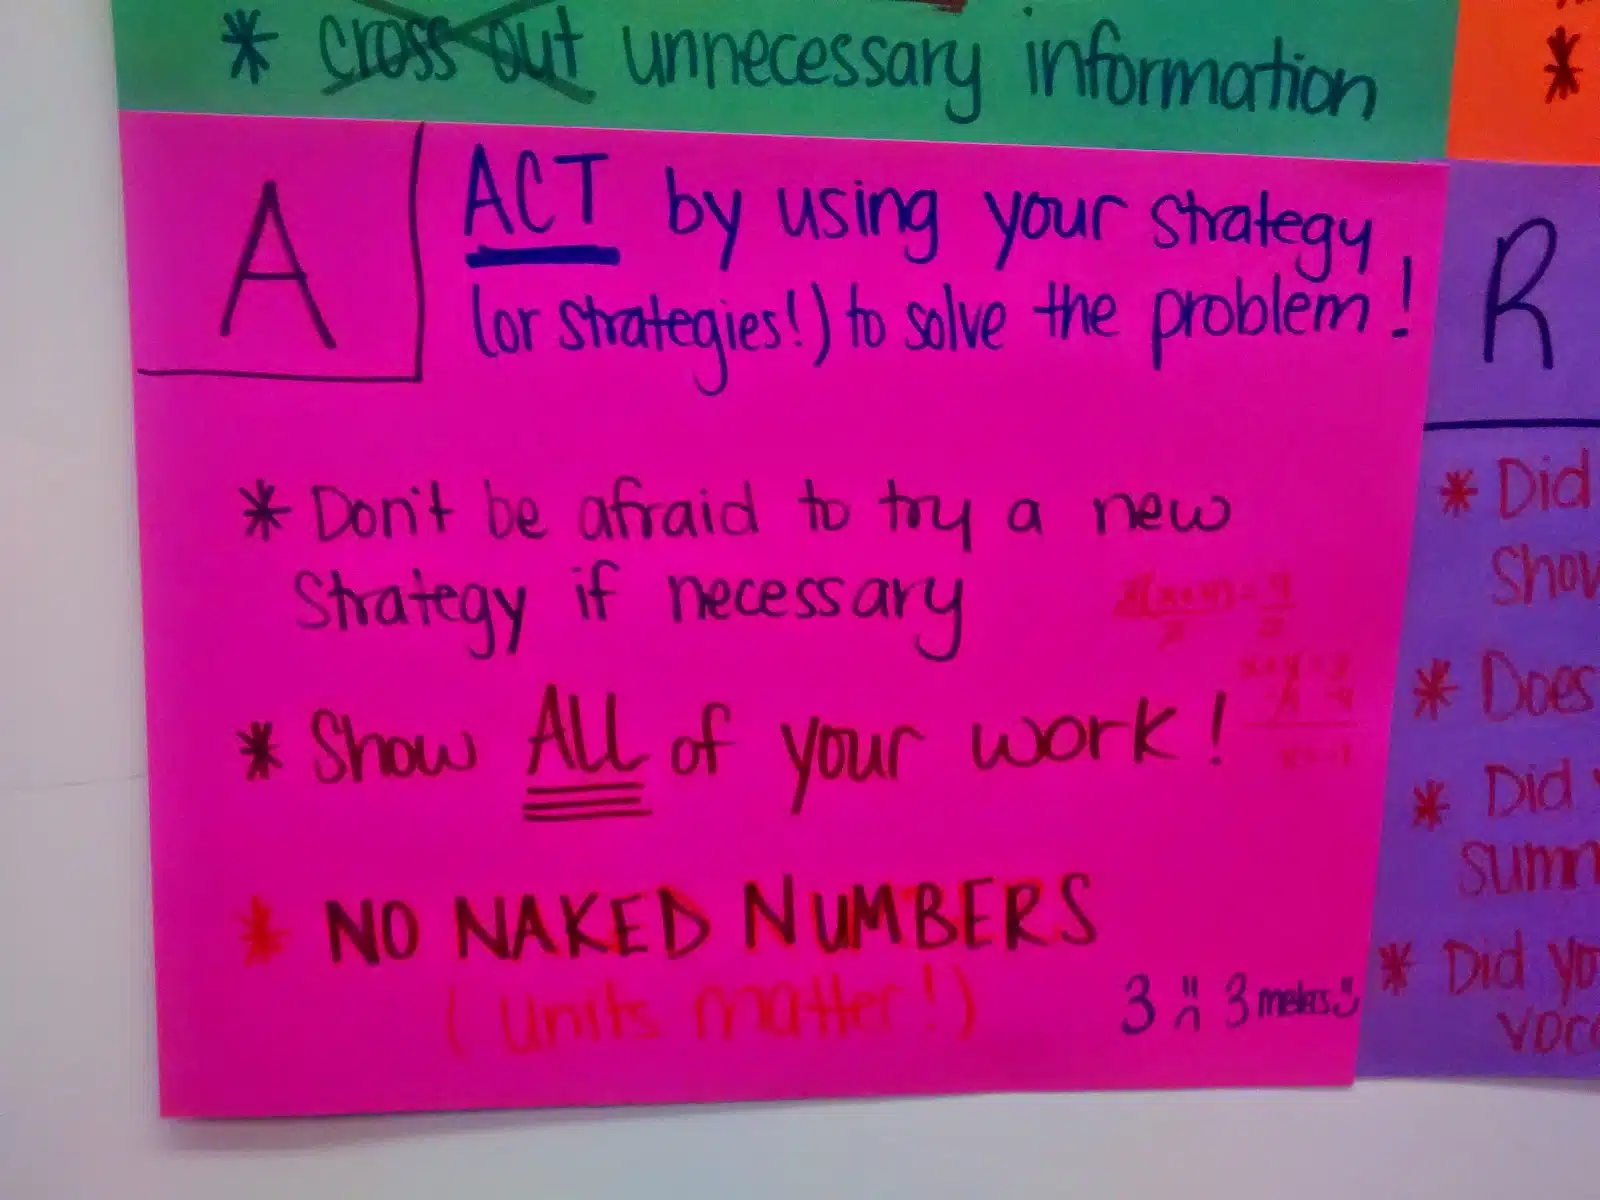 * cross out unnecessary information
*
A
ACT by using your strategy
(or strategies!) to solve the problem!
* Don't be afraid to try a new
strategy if necessary
* Show ALL of your work!
* NO NAKED NUMBERS
(Units matter!)
3 :( 3 meters :)
R
* Did
Show
* Does
* Did
summ
* Did yo
voca